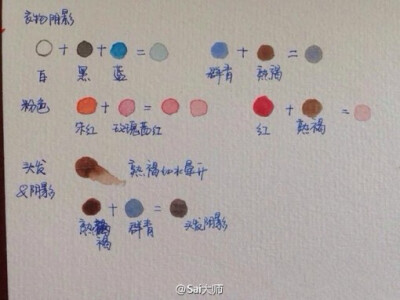 衣物阴影
+ + = + =
白 黑 蓝 群青 熟褐
粉色 + = + =
朱红 玫瑰茜红 红 熟褐
头发 熟褐加水晕开
及阴影
+ =
熟褐 群青 头发阴影
@Sai大师